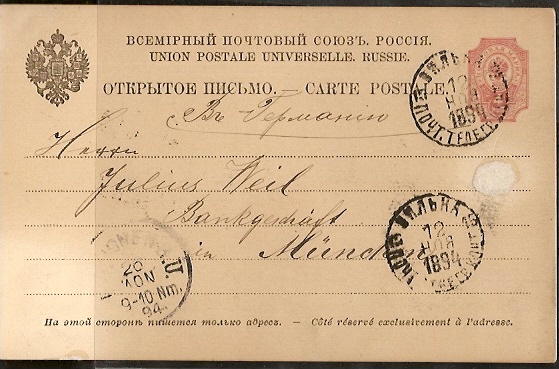 ВСЕМІРНЫЙ ПОЧТОВЫЙ СОЮЗЪ. РОССІЯ.
UNION POSTALE UNIVERSELLE. RUSSIE.
ОТКРЫТОЕ ПИСЬМО. — CARTE POSTALE.
ВИЛЬНА
12
НОЯ
1894
ПОЧТ. ТЕЛЕГР.
Въ Германію
Herrn
Julius Weil
Bankgeschäft
in München
ВИЛЬНА
12
НОЯ
1894
20
NOV
9-10 Nm.
94
На этой сторонѣ пишется только адресъ. — Côté réservé exclusivement à l'adresse.